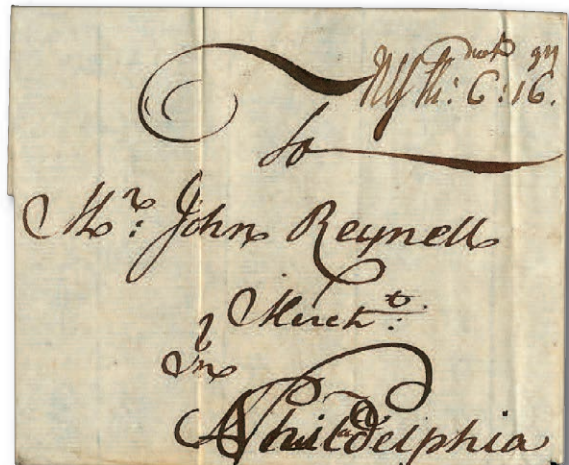 dwt gr
NY sh: 6:16.
To
Mr: John Reynell
Mercht:
In
Philadelphia